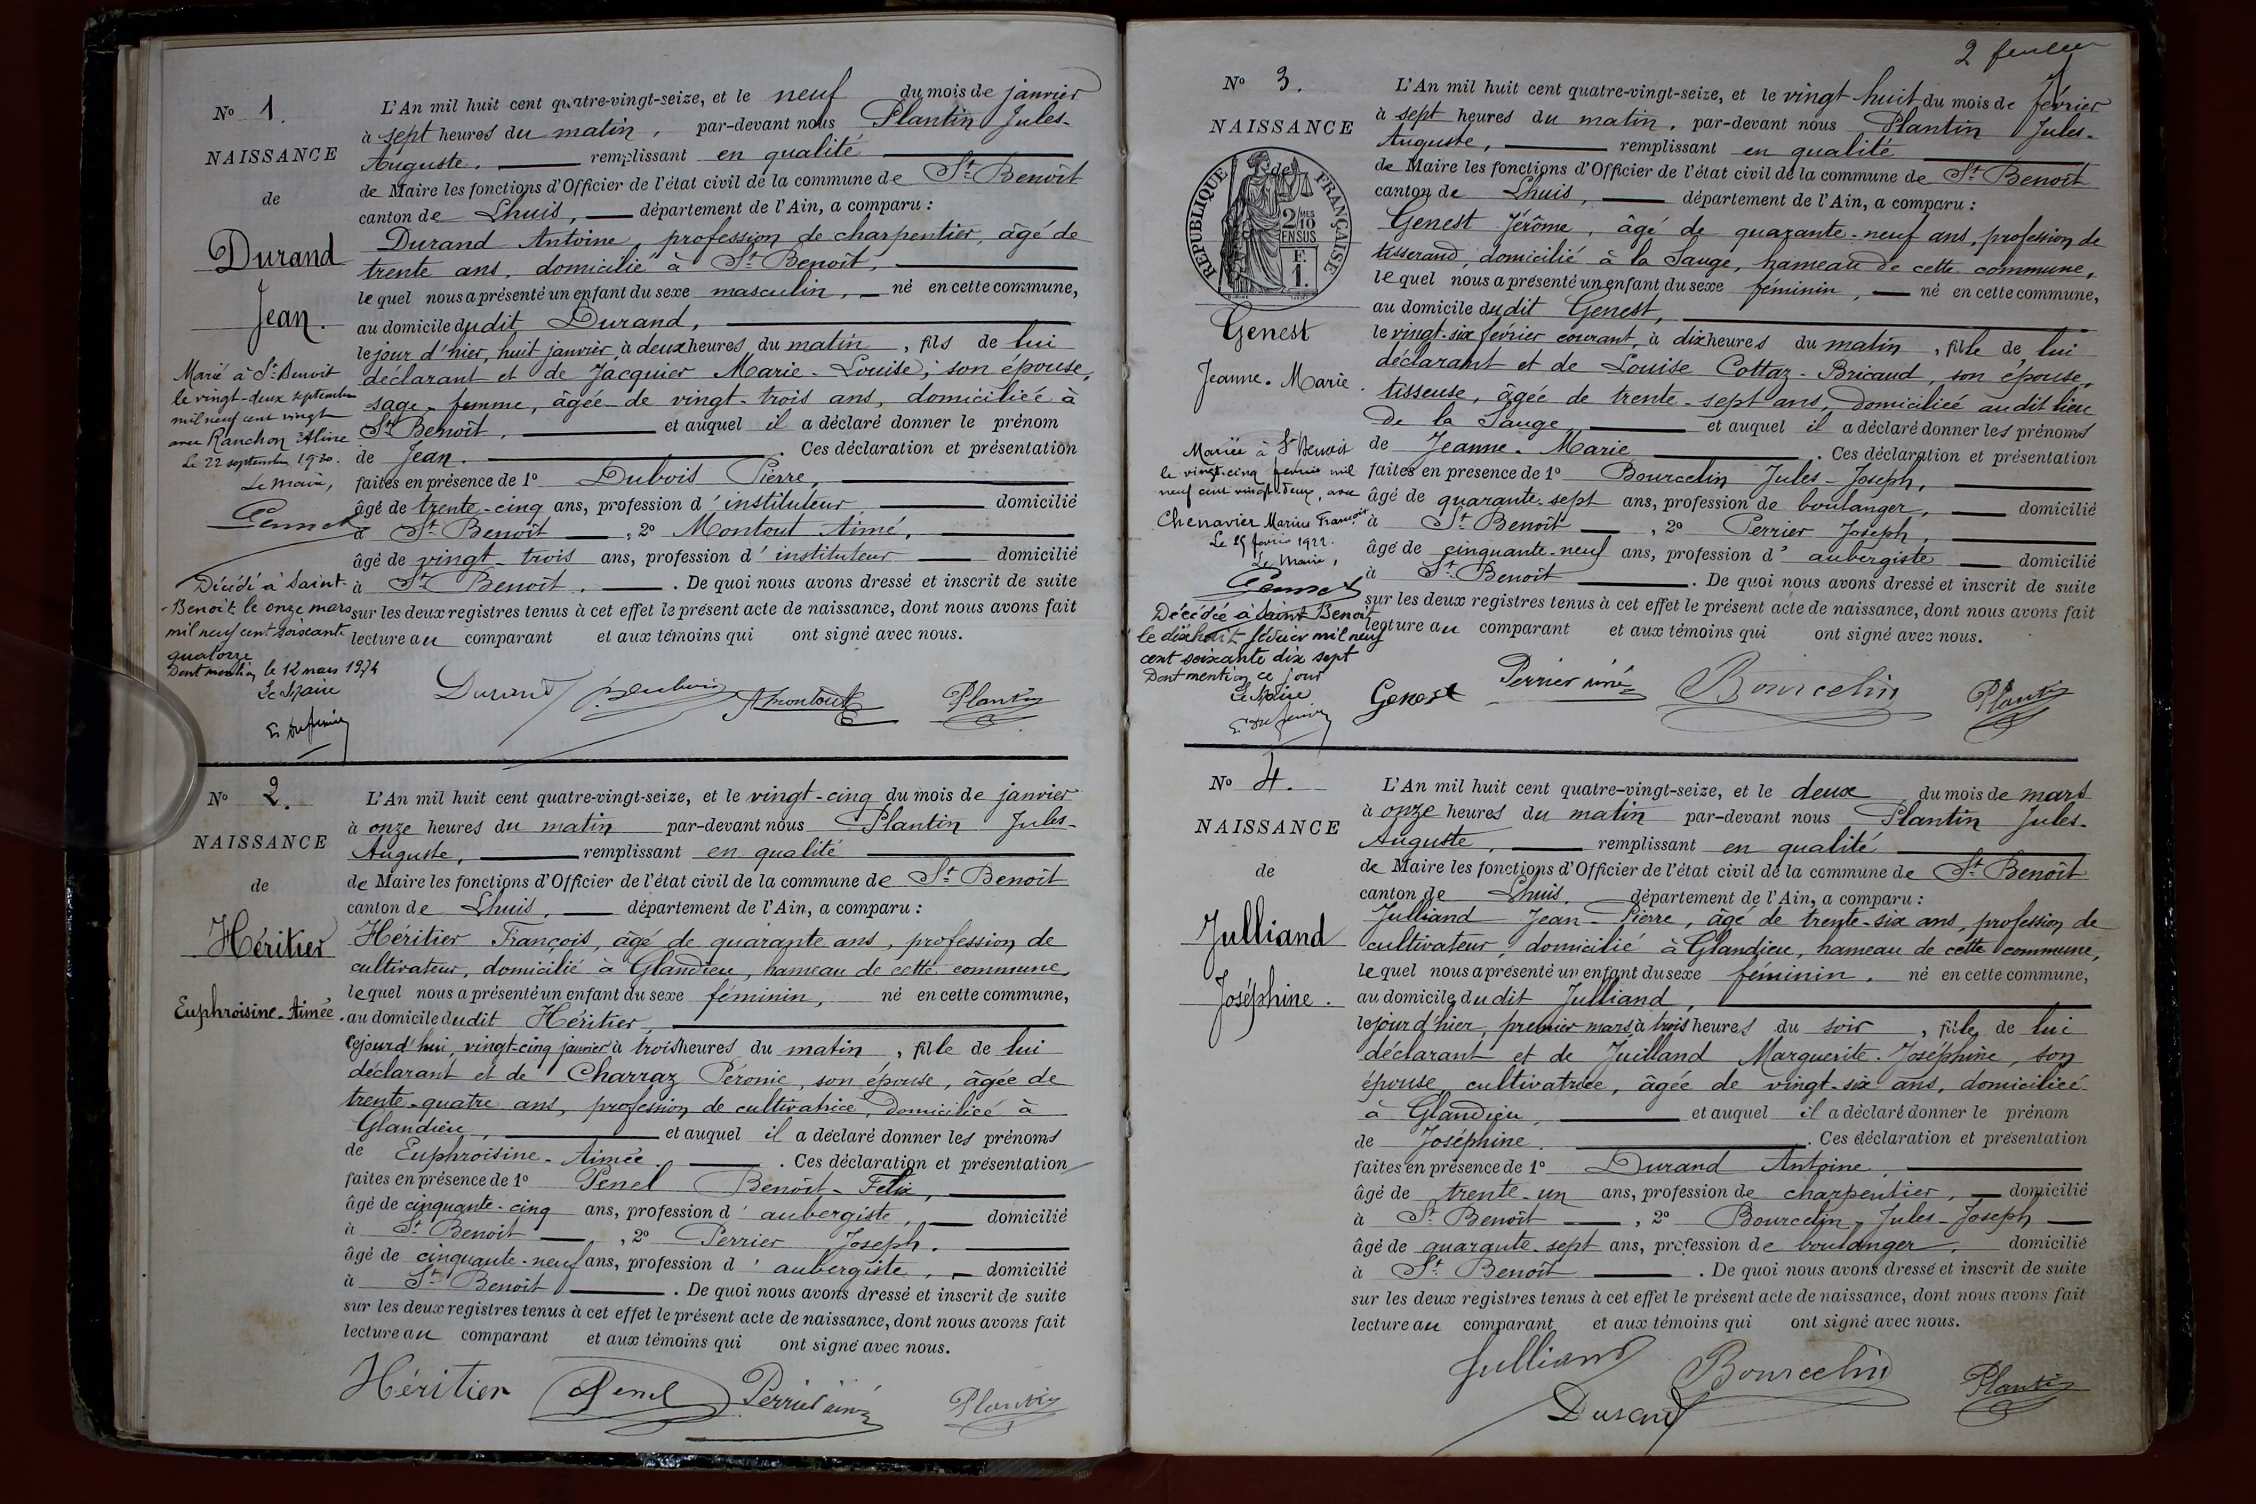 N° 1.
NAISSANCE
de
Durand
Jean.
Marié à St Benoit
le vingt-deux septembre
mil neuf cent vingt
avec Ranchon Aline
Le 22 septembre 1920.
Le Maire,
Décédé à Saint-
Benoît le onze mars
mil neuf cent soixante
quatorze
Dont mention le 12 mars 1974
Le Maire
L'An mil huit cent quatre-vingt-seize, et le neuf du mois de janvier
à sept heures du matin, par-devant nous Plantin Jules-
Auguste, remplissant en qualité
de Maire les fonctions d'Officier de l'état civil de la commune de St Benoît
canton de Lhuis, département de l'Ain, a comparu :
Durand Antoine, profession de charpentier, âgé de
trente ans, domicilié à St Benoît,
lequel nous a présenté un enfant du sexe masculin, né en cette commune,
au domicile dudit Durand,
le jour d'hier, huit janvier, à deux heures du matin, fils de lui
déclarant et de Jacquier Marie-Louise, son épouse,
sage-femme, âgée de vingt-trois ans, domiciliée à
St Benoît, et auquel il a déclaré donner le prénom
de Jean. Ces déclaration et présentation
faites en présence de 1° Dubois Pierre,
âgé de trente-cinq ans, profession d'instituteur domicilié
à St Benoît, 2° Montout Aimé,
âgé de vingt-trois ans, profession d'instituteur domicilié
à St Benoît. De quoi nous avons dressé et inscrit de suite
sur les deux registres tenus à cet effet le présent acte de naissance, dont nous avons fait
lecture au comparant et aux témoins qui ont signé avec nous.
Durand P. Dubois A Montout Plantin
N° 2.
NAISSANCE
de
Héritier
Euphroisine-Aimée.
L'An mil huit cent quatre-vingt-seize, et le vingt-cinq du mois de janvier
à onze heures du matin par-devant nous Plantin Jules-
Auguste, remplissant en qualité
de Maire les fonctions d'Officier de l'état civil de la commune de St Benoît
canton de Lhuis, département de l'Ain, a comparu :
Héritier François, âgé de quarante ans, profession de
cultivateur, domicilié à Glandieu, hameau de cette commune,
lequel nous a présenté un enfant du sexe féminin, né en cette commune,
au domicile dudit Héritier,
cejourd'hui, vingt-cinq janvier à trois heures du matin, fille de lui
déclarant et de Charraz Péronie, son épouse, âgée de
trente-quatre ans, profession de cultivatrice, domiciliée à
Glandieu, et auquel il a déclaré donner les prénoms
de Euphroisine-Aimée. Ces déclaration et présentation
faites en présence de 1° Penel Benoît-Félix,
âgé de cinquante-cinq ans, profession d'aubergiste, domicilié
à St Benoît, 2° Perrier Joseph.
âgé de cinquante-neuf ans, profession d'aubergiste, domicilié
à St Benoît. De quoi nous avons dressé et inscrit de suite
sur les deux registres tenus à cet effet le présent acte de naissance, dont nous avons fait
lecture au comparant et aux témoins qui ont signé avec nous.
Héritier Penel Perrier ainé Plantin
2
N° 3.
NAISSANCE
de
RÉPUBLIQUE FRANÇAISE
2/10MES
EN SUS
F.
1.
Genest
Jeanne-Marie.
Mariée à St Benoit
le vingt-cinq février mil
neuf cent vingt-deux, avec
Chenavier Marius François
Le 25 février 1922.
Le Maire,
Décédée à Saint Benoit
le dix huit février mil neuf
cent soixante dix sept
Dont mention ce jour
Le Maire
L'An mil huit cent quatre-vingt-seize, et le vingt huit du mois de février
à sept heures du matin, par-devant nous Plantin Jules-
Auguste, remplissant en qualité
de Maire les fonctions d'Officier de l'état civil de la commune de St Benoît
canton de Lhuis, département de l'Ain, a comparu :
Genest Jérôme, âgé de quarante-neuf ans, profession de
tisserand, domicilié à la Sauge, hameau de cette commune,
lequel nous a présenté un enfant du sexe féminin, né en cette commune,
au domicile dudit Genest,
le vingt-six février courant, à dix heures du matin, fille de lui
déclarant et de Louise Cottaz-Bricaud, son épouse,
tisseuse, âgée de trente-sept ans, domiciliée audit lieu
de la Sauge et auquel il a déclaré donner les prénoms
de Jeanne-Marie. Ces déclaration et présentation
faites en présence de 1° Bourcelin Jules-Joseph,
âgé de quarante-sept ans, profession de boulanger, domicilié
à St Benoît, 2° Perrier Joseph,
âgé de cinquante-neuf ans, profession d'aubergiste domicilié
à St Benoît. De quoi nous avons dressé et inscrit de suite
sur les deux registres tenus à cet effet le présent acte de naissance, dont nous avons fait
lecture au comparant et aux témoins qui ont signé avec nous.
Genest Perrier ainé Bourcelin Plantin
N° 4.
NAISSANCE
de
Julliand
Joséphine.
L'An mil huit cent quatre-vingt-seize, et le deux du mois de mars
à onze heures du matin par-devant nous Plantin Jules-
Auguste, remplissant en qualité
de Maire les fonctions d'Officier de l'état civil de la commune de St Benoît
canton de Lhuis, département de l'Ain, a comparu :
Julliand Jean-Pierre, âgé de trente-six ans, profession de
cultivateur, domicilié à Glandieu, hameau de cette commune,
lequel nous a présenté un enfant du sexe féminin, né en cette commune,
au domicile dudit Julliand,
le jour d'hier, premier mars à trois heures du soir, fille de lui
déclarant et de Juilland Marguerite-Joséphine, son
épouse, cultivatrice, âgée de vingt-six ans, domiciliée
à Glandieu, et auquel il a déclaré donner le prénom
de Joséphine. Ces déclaration et présentation
faites en présence de 1° Durand Antoine,
âgé de trente-un ans, profession de charpentier, domicilié
à St Benoît, 2° Bourcelin Jules-Joseph
âgé de quarante-sept ans, profession de boulanger, domicilié
à St Benoît. De quoi nous avons dressé et inscrit de suite
sur les deux registres tenus à cet effet le présent acte de naissance, dont nous avons fait
lecture au comparant et aux témoins qui ont signé avec nous.
Julliand Bourcelin Plantin
Durand